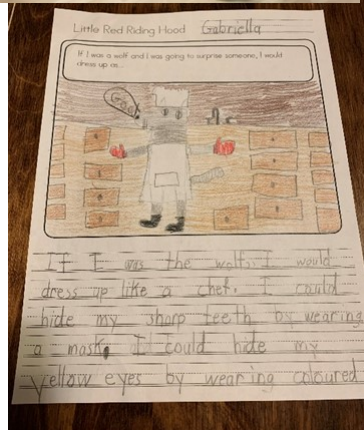 Little Red Riding Hood Gabriella
If I was a wolf and I was going to surprise someone, I would
dress up as...
If I was the wolf, I would
dress up like a chef. I could
hide my sharp teeth by wearing
a mask. I could hide my
yellow eyes by wearing coloured